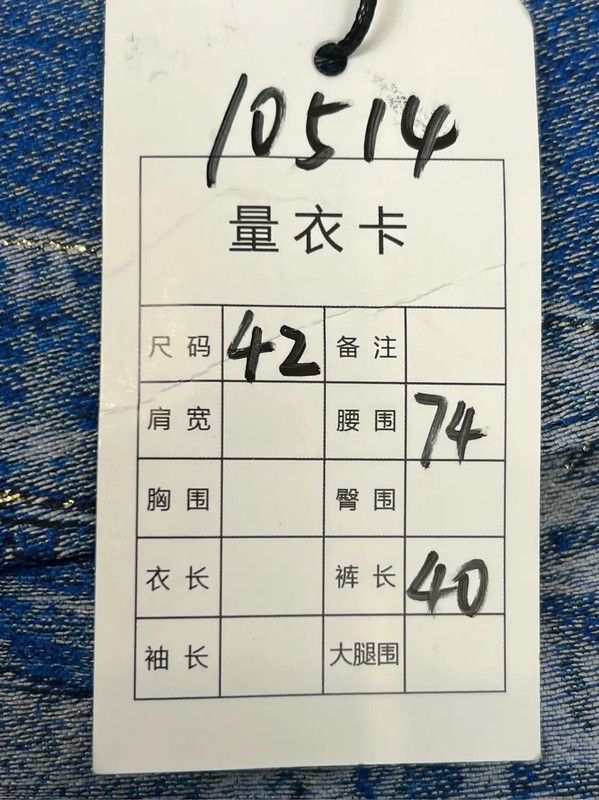 10514
量衣卡
尺码 42 备注
肩宽 腰围 74
胸围 臀围
衣长 裤长 40
袖长 大腿围